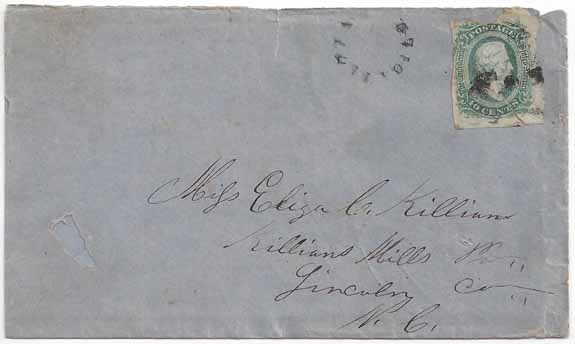 POSTAGE
10 CENTS
Miss Eliza C. Killian
Killians Mills
Lincoln Co
N. C.